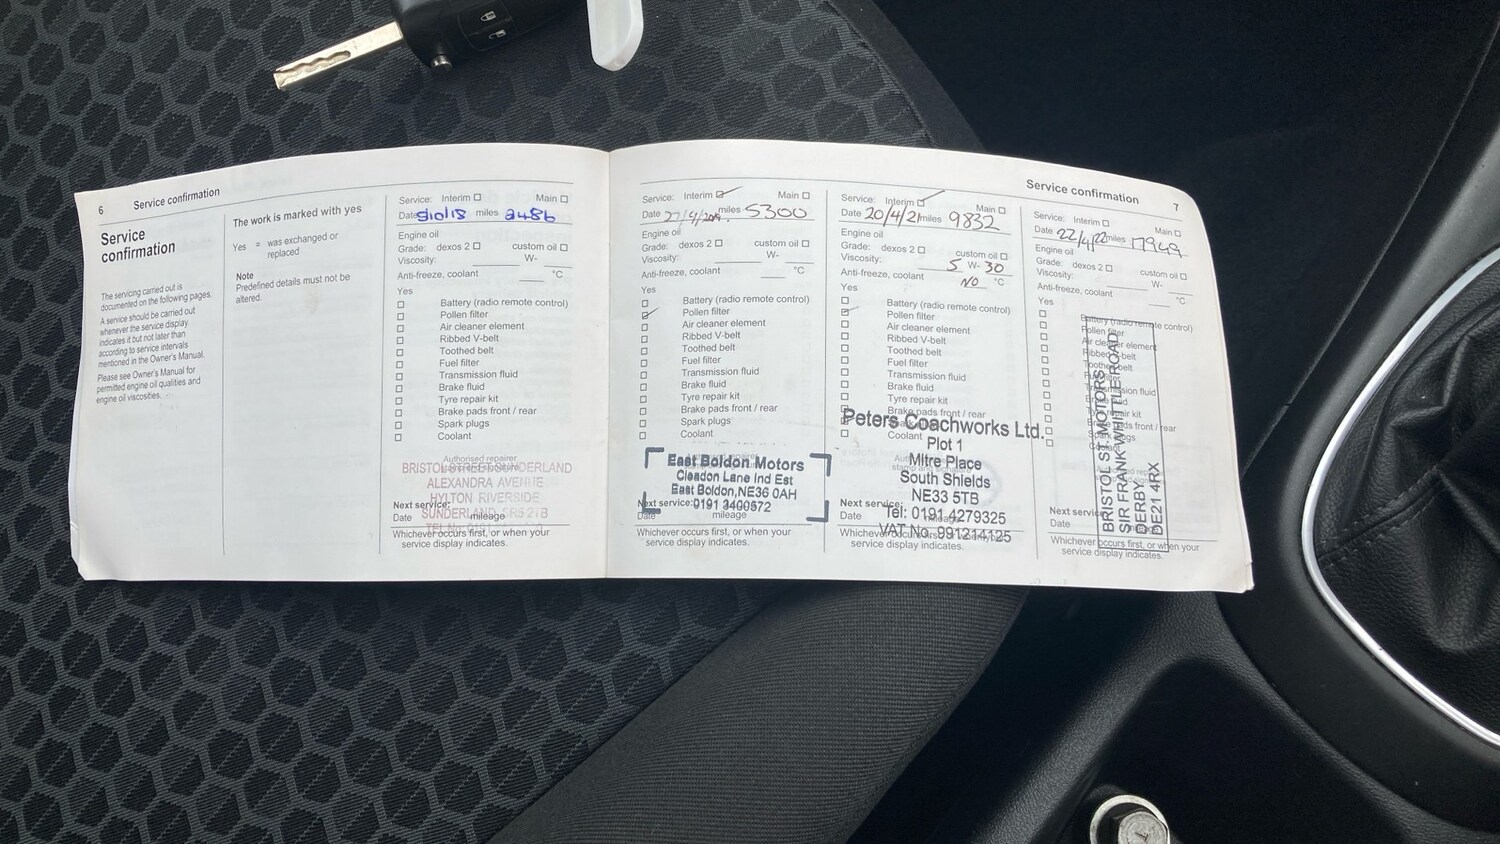 6 Service confirmation
Service
confirmation
The servicing carried out is
documented on the following pages.
A service should be carried out
whenever the service display
indicates it but not later than
according to service intervals
mentioned in the Owner's Manual.
Please see Owner's Manual for
permitted engine oil qualities and
engine oil viscosities.
The work is marked with yes
Yes = was exchanged or
replaced
Note
Predefined details must not be
altered.
Service: Interim Main
Date miles 2486
Engine oil
Grade: dexos 2 custom oil
Viscosity: W-
Anti-freeze, coolant °C
Yes
Battery (radio remote control)
Pollen filter
Air cleaner element
Ribbed V-belt
Toothed belt
Fuel filter
Transmission fluid
Brake fluid
Tyre repair kit
Brake pads front / rear
Spark plugs
Coolant
Authorised repairer
BRISTOL STREET SUNDERLAND
ALEXANDRA AVENUE
HYLTON RIVERSIDE
SUNDERLAND
Next service:
Date mileage
Whichever occurs first, or when your
service display indicates.
Service: Interim Main
Date miles 5300
Engine oil
Grade: dexos 2 custom oil
Viscosity: W-
Anti-freeze, coolant °C
Yes
Battery (radio remote control)
Pollen filter
Air cleaner element
Ribbed V-belt
Toothed belt
Fuel filter
Transmission fluid
Brake fluid
Tyre repair kit
Brake pads front / rear
Spark plugs
Coolant
East Boldon Motors
Cleadon Lane Ind Est
East Boldon, NE36 0AH
0191 3400572
Next service:
Date mileage
Whichever occurs first, or when your
service display indicates.
Service confirmation 7
Service: Interim Main
Date 20/4/21 miles 9832
Engine oil
Grade: dexos 2 custom oil
Viscosity: 5 W- 30
Anti-freeze, coolant NO °C
Yes
Battery (radio remote control)
Pollen filter
Air cleaner element
Ribbed V-belt
Toothed belt
Fuel filter
Transmission fluid
Brake fluid
Tyre repair kit
Brake pads front / rear
Spark plugs
Coolant
Peters Coachworks Ltd.
Plot 1
Mitre Place
South Shields
NE33 5TB
Tel: 0191 4279325
VAT No. 991214125
Next service:
Date mileage
Whichever occurs first, or when your
service display indicates.
Service: Interim Main
Date 22/4/22 miles 17949
Engine oil
Grade: dexos 2 custom oil
Viscosity: W-
Anti-freeze, coolant °C
Yes
Battery (radio remote control)
Pollen filter
Air cleaner element
Ribbed V-belt
Toothed belt
Transmission fluid
Brake fluid
Tyre repair kit
Brake pads front / rear
Spark plugs
Coolant
BRISTOL ST. MOTORS
SIR FRANK WHITTLE ROAD
DERBY
DE21 4RX
Next service:
Date
Whichever occurs first, or when your
service display indicates.